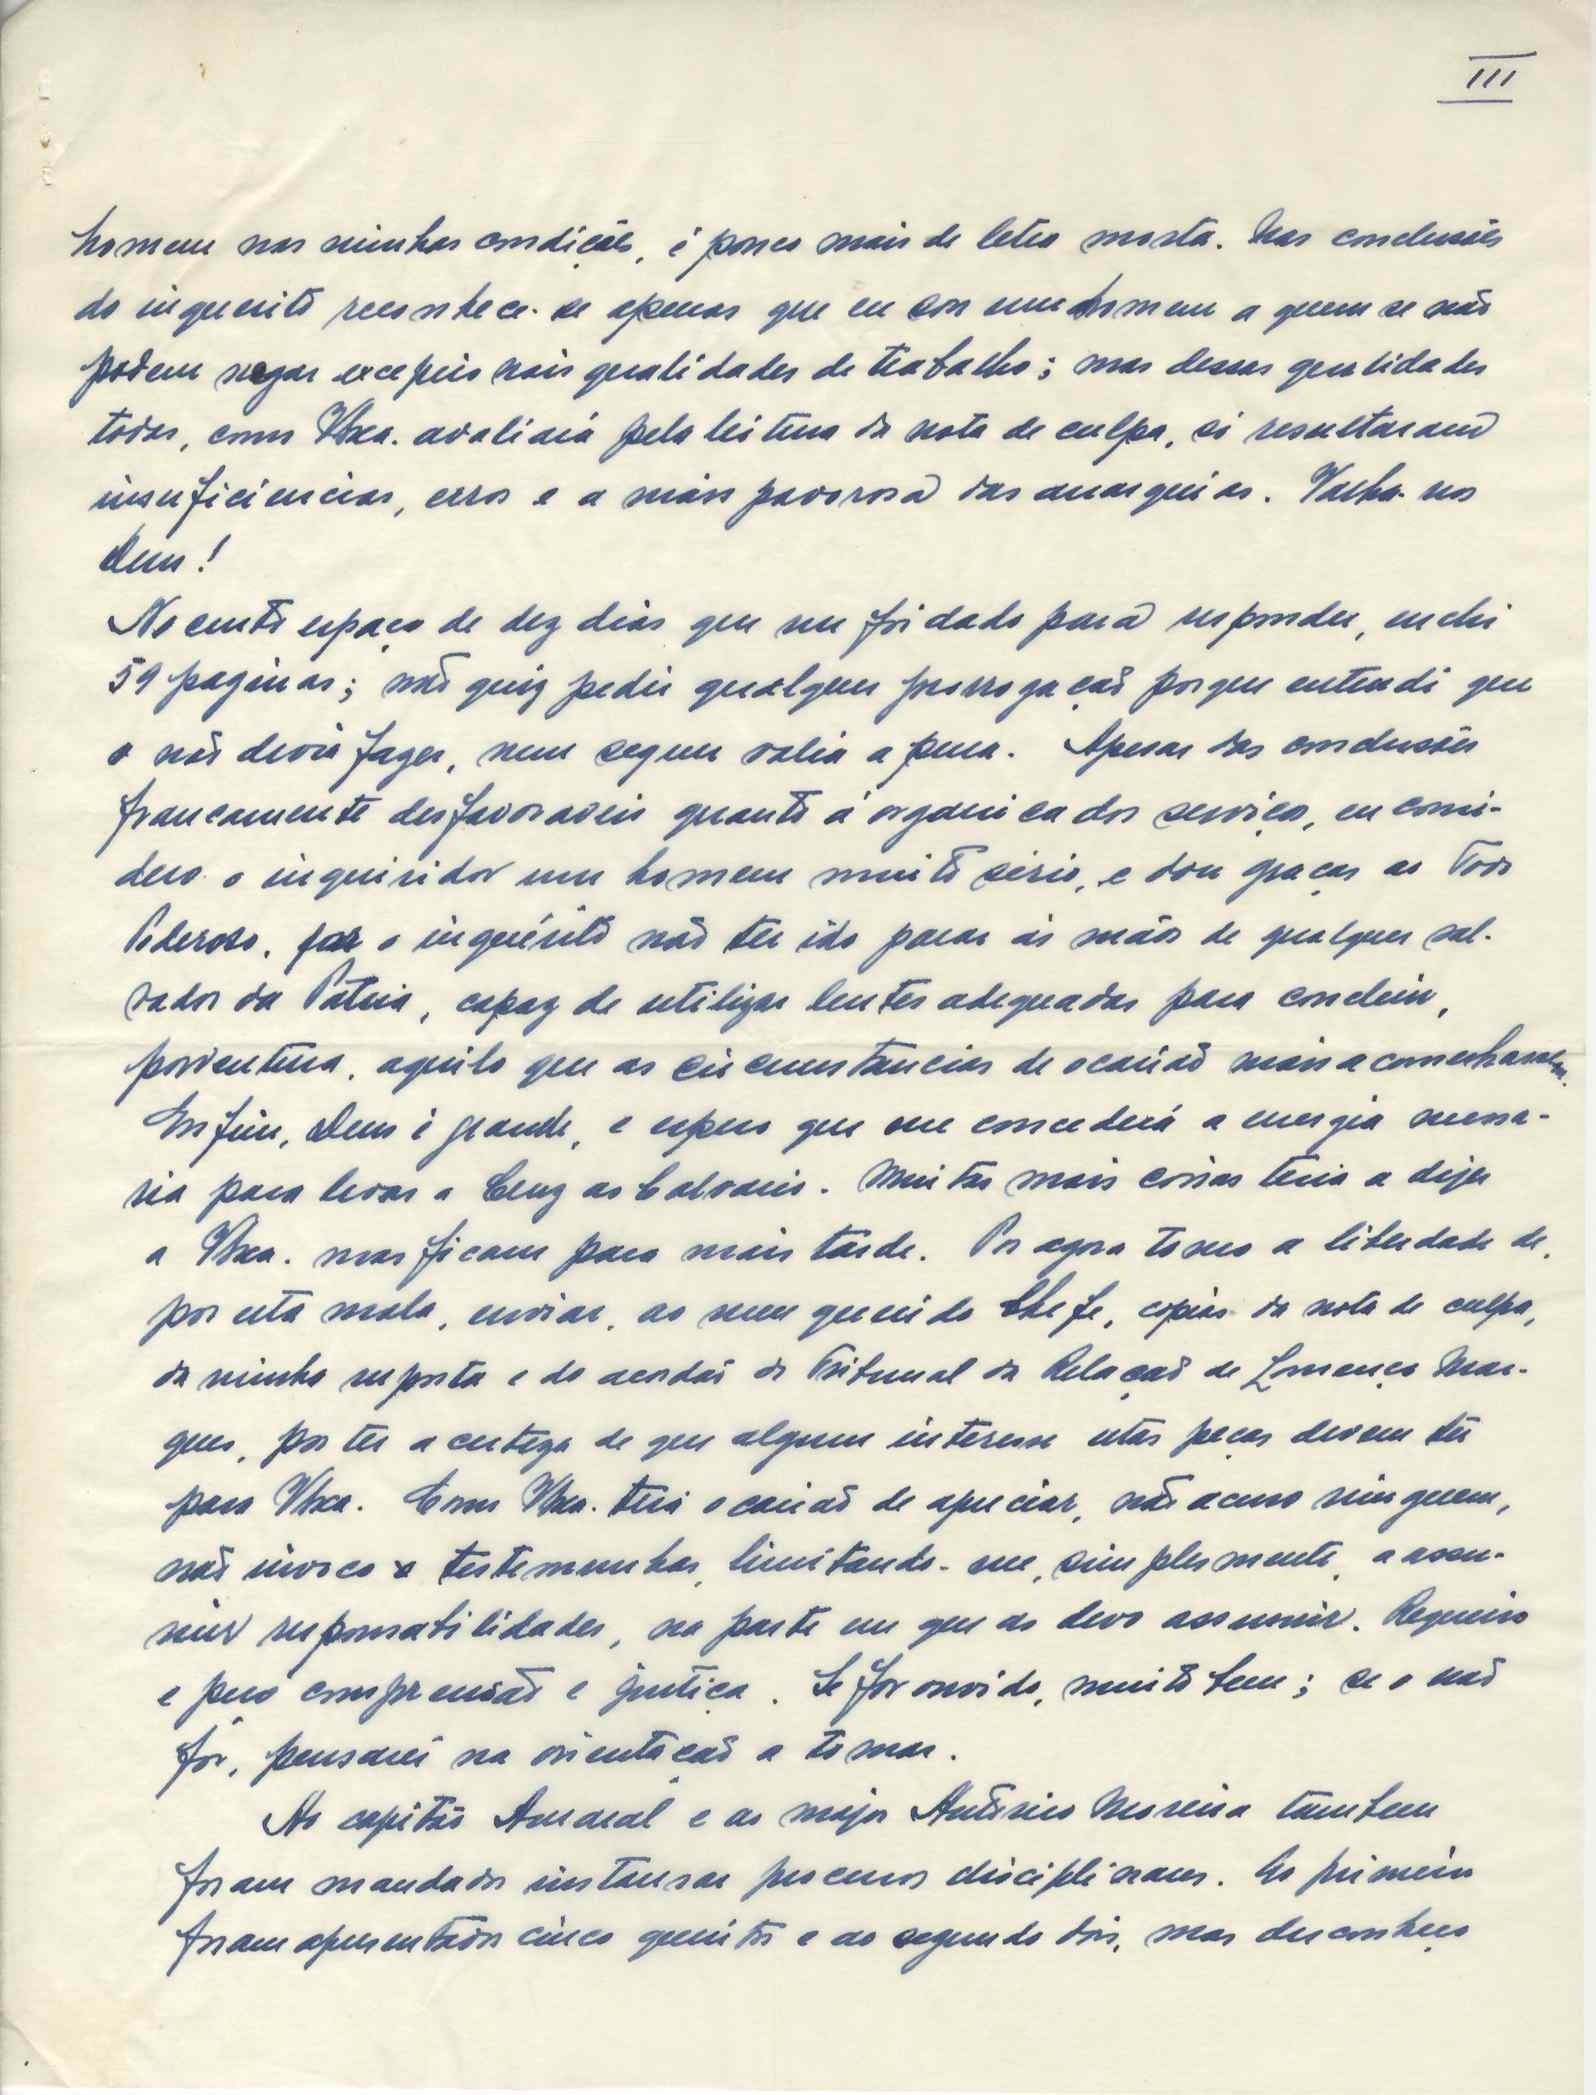 III
homem nas minhas condições, é pouco mais de letra morta. Nas conclusões
do inquerito reconhece-se apenas que eu sou um homem a quem se não
podem negar excepcionais qualidades de trabalho; mas dessas qualidades
todas, como VExa. avaliará pela leitura da nota de culpa, só resultaram
insuficiencias, erros e a mais pavorosa das anarquias. Valha-nos
Deus!
No curto espaço de dez dias que me foi dado para responder, enchi
59 paginas; não quiz pedir qualquer prorrogação porque entendi que
o não devia fazer, nem sequer valia a pena. Apesar das conclusões
francamente desfavoraveis quanto á organica dos serviços, eu consi-
dero o inquiridor um homem muito sério, e dou graças ao Todo
Poderoso, por o inquérito não ter ido parar ás mãos de qualquer sal-
vador da Patria, capaz de utilizar lentes adequadas para concluir,
porventura, aquilo que as circunstancias de ocasião mais aconselhassem.
Enfim, Deus é grande, e espero que me concederá a energia necessa-
ria para levar a Cruz ao Calvario. Muitas mais coisas teria a dizer
a VExa. mas ficam para mais tarde. Por agora tomo a liberdade de,
por esta mala, enviar, ao meu querido Chefe, copias da nota de culpa,
da minha resposta e do acordão do Tribunal da Relação de Lourenço Mar-
ques, por ter a certeza de que algum interesse estas peças devem ter
para VExa. Como VExa. terá ocasião de apreciar, não acuso ninguem,
não invoco testemunhas, limitando-me, simplesmente, a assu-
mir responsabilidades, na parte em que as devo assumir. Requeiro
e peço comprensão e justiça. Se for ouvido, muito bem; se o não
fôr, pensarei na orientação a tomar.
Ao capitão Amaral e ao major António Moreira tambem
foram mandados instaurar processos disciplinares. Ao primeiro
foram apresentados cinco quesitos e ao segundo dois, mas desconheço